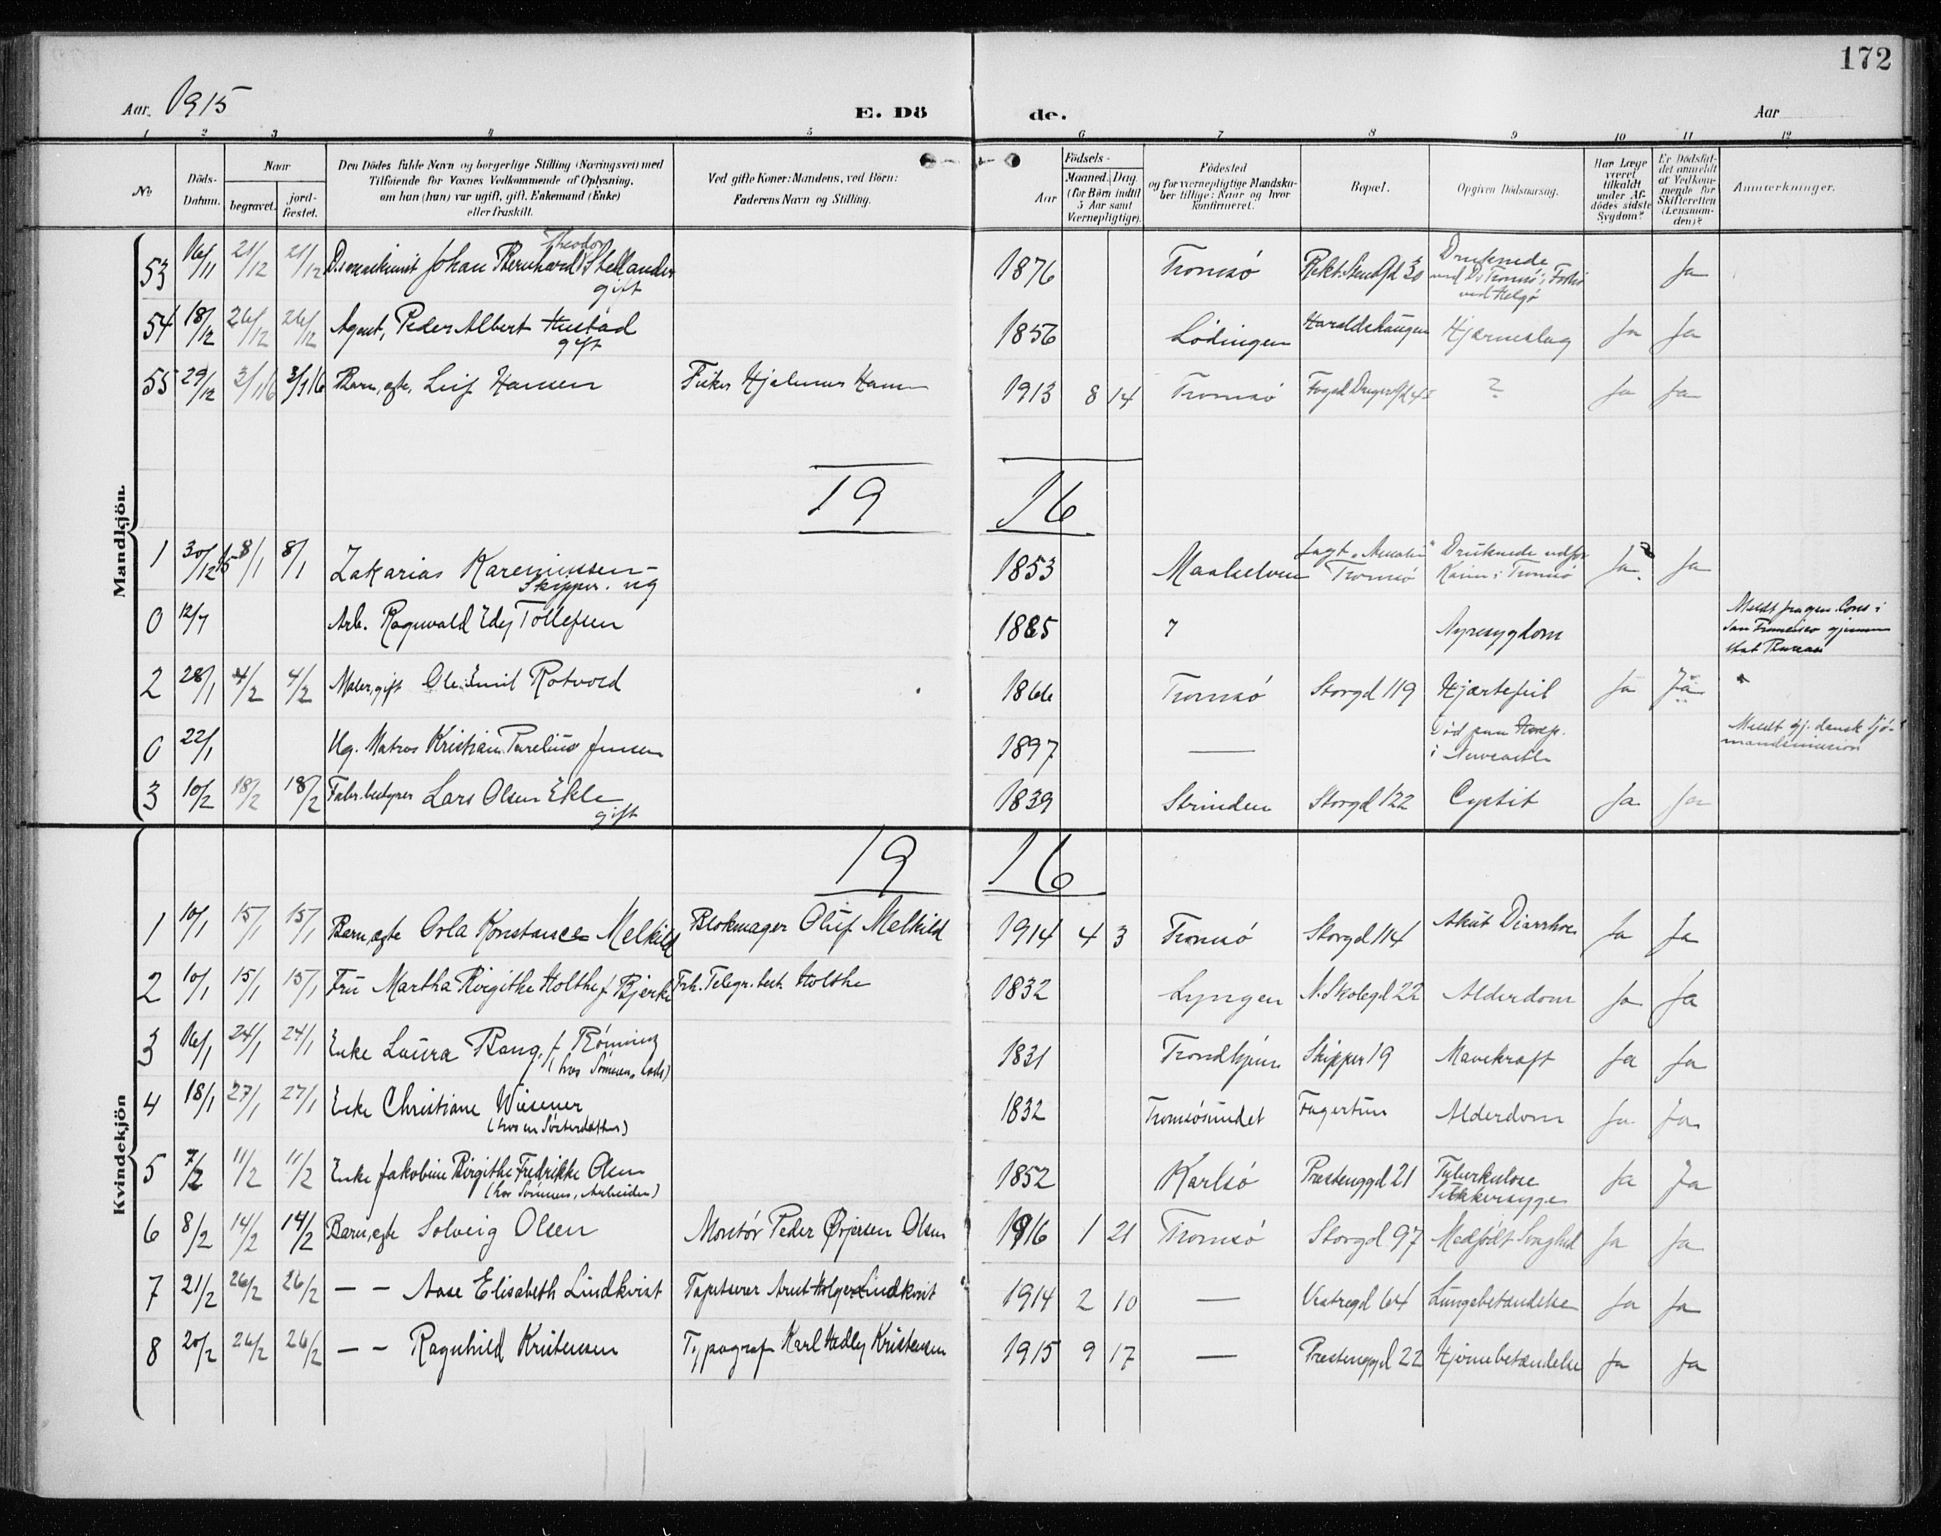 172
Aar. 1915
E. Dö de.
Aar
1 2 3 4 5 6 7 8 9 10 11 12
No
Döds-Datum.
Naar
begravet.
jord-fæstet.
Den Dödes fulde Navn og borgerlige Stilling (Næringsvei) med
Tilföiende for Voxnes Vedkommende af Oplysning,
om han (hun) var ugift, gift, Enkemand (Enke)
eller fraskilt.
Ved gifte Koner: Mandens, ved Börn:
Faderens Navn og Stilling.
Födsels-
Aar
Maaned. Dag
(for Börn indtil
5 Aar samt
Værnepligtige).
Födested
og for værnepligtige Mandska-
ber tillige: Naar og hvor
konfirmeret.
Bopæl.
Opgiven Dödsaarsag.
Har Læge
været
tilkaldt
under Af-
dödes sidste
Sygdom?
Er Dödsfal-
det anmeldt
af Vedkom-
mende for
Skifteretten
(Lensman-
den)?
Anmærkninger.
Mandkjön.
Theodor
53 16/11 21/12 21/12 Johan Bernhard Stellander 1876 Tromsø 30 Druknede Ja
gift ved Helgø
54 18/12 26/12 26/12 Agent, Peder Albert Hustad 1856 Lødingen Haraldshaugen Hjerneslag Ja Ja
gift
55 29/12 3/1 16 3/1 16 Barn, egte, Leif Hansen Fisker Hjalmar Hansen 1913 8 14 Tromsø ? Ja Ja
19 16
1 30/12 15 8/1 8/1 Zakarias Kareniussen 1853 Maalselven Jagt Tromsø Druknede Tromsø Ja Ja
Skipper. ug
0 12/7 Arb. Ragnvald Edy Tollefsen 1885 ? Nyresygdom San Francisco gjennem
2 28/1 4/2 4/2 Maler, gift Ole Emil Rotvold 1866 Tromsø Storgd 119 Hjærtefeil Ja Ja
0 22/1 Ug. Matros Kristian Parelius Jensen 1897 — Død paa Hosp. i Newcastle Meldt gj. dansk sjø-
mandsmission
3 10/2 18/2 18/2 Fabr. bestyrer Lars Olsen Ekle 1839 Strinden Storgd 122 Cystit Ja Ja
gift
19 16
Kvindekjön
1 10/1 15/1 15/1 Barn, egte Orla Konstance Melkild Blokmager Oluf Melkild 1914 4 3 Tromsø Storgd 114 Akut Diarrhoe Ja Ja
2 10/1 15/1 15/1 Fru Martha Birgithe Holthe f. Bjerke Frh. Telegr. best. Holthe 1832 Lyngen N. Skolegd 22 Alderdom Ja Ja
3 16/1 24/1 24/1 Enke Laura Bang, f. Rønning 1831 Trondhjem Skipper 19 Mavekræft Ja Ja
4 18/1 27/1 27/1 Enke Christiane Wiesener 1832 Tromsøsundet Fagertun Alderdom Ja Ja
(hos en Søsterdatter)
5 7/2 11/2 11/2 Enke Jakobine Birgithe Fredrikke Olsen 1852 Karlsø Prestenggd 21 Tuberkulose Ja Ja
(hos Sønnen, Arbeider) Sukkersyge
6 8/2 14/2 14/2 Barn, egte Solveig Olsen Montør Peder Ørjersen Olsen 1916 1 21 Tromsø Storgd 97 Medfødt Svaghed Ja Ja
7 21/2 26/2 26/2 — — Aase Elisabeth Lindkvist Tapetserer Arnt Holger Lindkvist 1914 2 10 — Vestregd 64 Lungebetændelse Ja Ja
8 20/2 26/2 26/2 — — Ragnhild Kristensen Typograf Karl Hadley Kristensen 1915 9 17 — Prestenggd 22 Hjernebetændelse Ja Ja